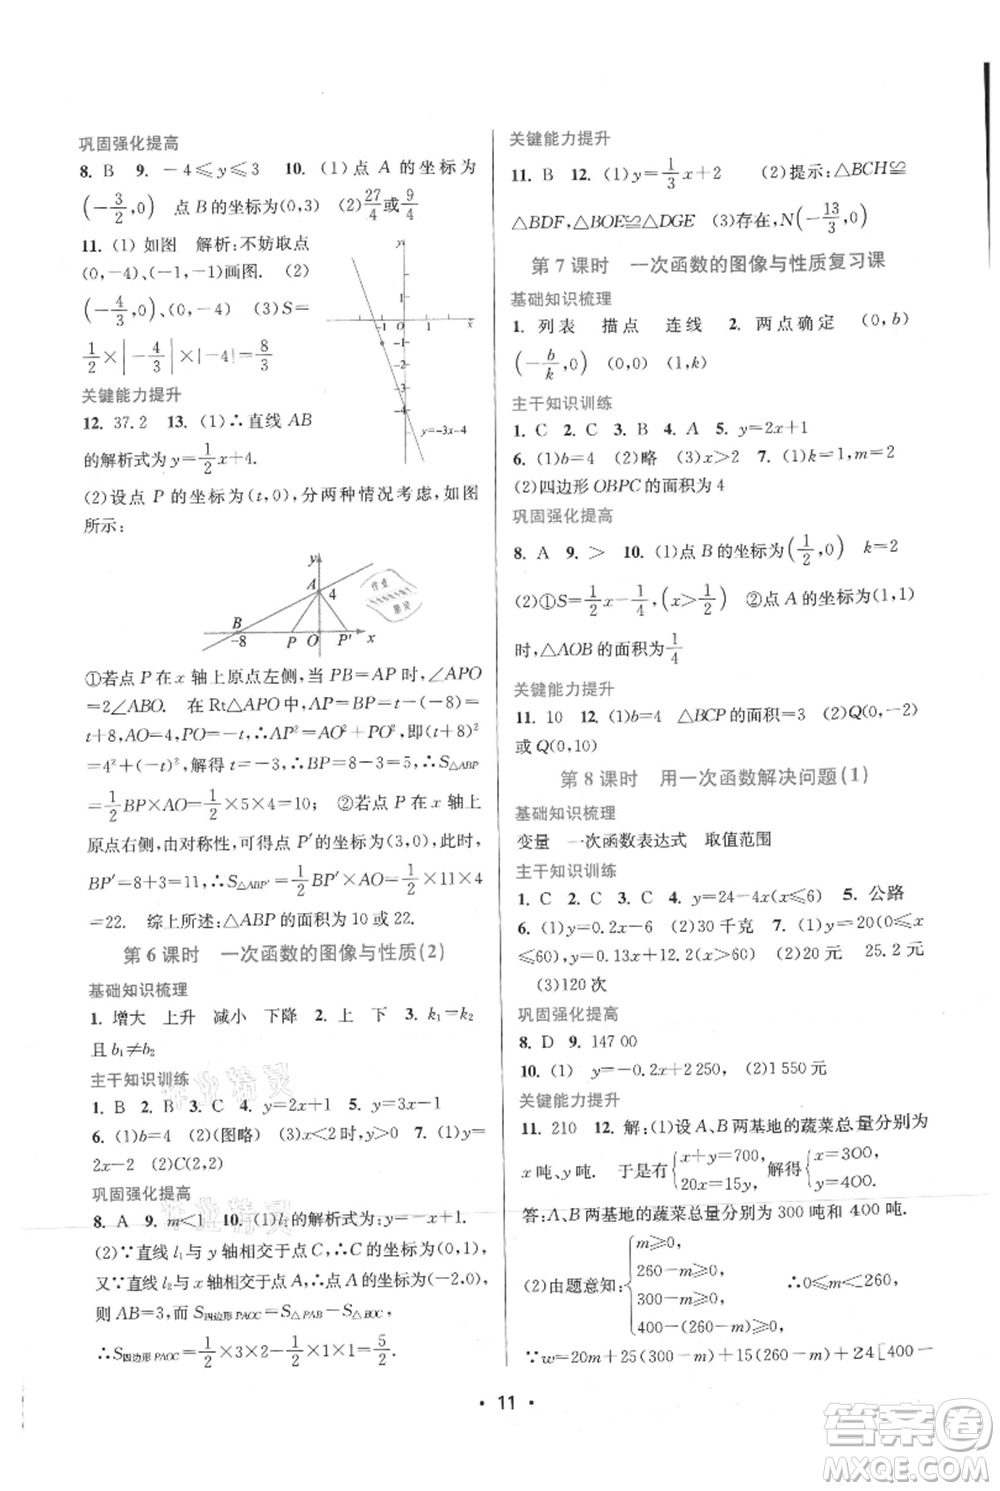 巩固强化提高
8. B　9. －4≤y≤3　10. (1)点 A 的坐标为
(－3/2,0)　点 B 的坐标为(0,3)　(2)27/4或9/4
11. (1) 如图　解析:不妨取点
(0,－4)、(－1,－1)画图.　(2)
(－4/3,0)、(0,－4)　(3)S＝
1/2×|－4/3|×|－4|＝8/3
y
1
－1 O 1 x
－1
－2
－3
－4
y=－3x－4
关键能力提升
12. 37.2　13. (1)∴直线 AB
的解析式为 y＝1/2x＋4.
(2)设点 P 的坐标为(t,0),分两种情况考虑,如图
所示:
y
A 4
B
－8 P O P′ x
①若点 P 在 x 轴上原点左侧,当 PB＝AP 时,∠APO
＝2∠ABO.　在 Rt△APO 中,AP＝BP＝t－(－8)＝
t＋8,AO＝4,PO＝－t,∴AP²＝AO²＋PO²,即(t＋8)²
＝4²＋(－t)²,解得:t＝－3,∴BP＝t＋8＝5,∴S△ABP
＝1/2BP×AO＝1/2×5×4＝10;　②若点 P 在 x 轴上
原点右侧,由对称性,可得点 P′的坐标为(3,0),此时,
BP′＝8＋3＝11,∴S△ABP′＝1/2BP′×AO＝1/2×11×4
＝22.　综上所述:△ABP 的面积为 10 或 22.
第 6 课时　一次函数的图像与性质(2)
基础知识梳理
1. 增大　上升　减小　下降　2. 上　下　3. k₁＝k₂
且 b₁≠b₂
主干知识训练
1. B　2. B　3. C　4. y＝2x＋1　5. y＝3x＋1
6. (1)b＝4　(2)(图略)　(3)x＜2　7. (1)y＝
2x－2　(2)C(2,2)
巩固强化提高
8. A　9. m＜1　10. (1)l₁的解析式为:y＝x＋2.
(2)∵直线 l₁与 y 轴相交于点 C,∴C 的坐标为(0,2),
又∵直线 l₁与 x 轴相交于点 A,∴A 点的坐标为(－2,0),
则 AB＝3,而 S四边形PAOC＝S△PAB－S△BOC,
∴S四边形PAOC＝1/2×3×2－1/2×1×1＝5/2.
关键能力提升
11. B　12. (1)y＝1/3x＋2　(2)提示:△BCH≌
△BDF,△BOE≌△DGE　(3)存在,N(－13/3,0)
第 7 课时　一次函数的图像与性质复习课
基础知识梳理
1. 列表　描点　连线　2. 两点确定　(0,b)
(－b/k,0)　(0,0)　(1,k)
主干知识训练
1. C　2. C　3. B　4. A　5. y＝2x＋1
6. (1)b＝4　(2)略　(3)x＞2　7. (1)k＝1,m＝2
(2)四边形 OBPC 的面积为 4
巩固强化提高
8. A　9. ＞　10. (1)点 B 的坐标为(1/2,0)　k＝2
(2)①S＝1/2x－1/4,(x＞1/2)　②点 A 的坐标为(1,1)
时,△AOB 的面积为1/4
关键能力提升
11. 10　12. (1)b＝4　△BCP的面积＝3　(2)Q(0,－2)
或 Q(0,10)
第 8 课时　用一次函数解决问题(1)
基础知识梳理
变量　一次函数表达式　取值范围
主干知识训练
1. C　2. C　3. C　4. y＝24－4x(x≤6)　5. 公路
6. (1)y＝0.2x－6　(2)30 千克　7. (1)y＝0.2x(0≤x
≤60),y＝0.13x＋12.2(x＞60)　(2)5 元　25.2 元
(3)120 次
巩固强化提高
8. D　9. 147 00
10. (1)　y＝－0.2x＋2 250,　(2)1 550 元
关键能力提升
11. 210　12. 解:(1)设 A、B 两基地的蔬菜总量分别为
x 吨、y 吨.　于是有{x＋y＝700, 20x＝15y, 解得{x＝300, y＝400.
答:A、B 两基地的蔬菜总量分别为 300 吨和 400 吨.
(2)由题意知:{m≥0 260－m≥0 300－m≥0 400－(260－m)≥0　∴0≤m≤260,
∵w＝20m＋25(300－m)＋15(260－m)＋24[400－
• 11 •
作业精灵
作业精灵
作业精灵
答案圈
MXQE.COM